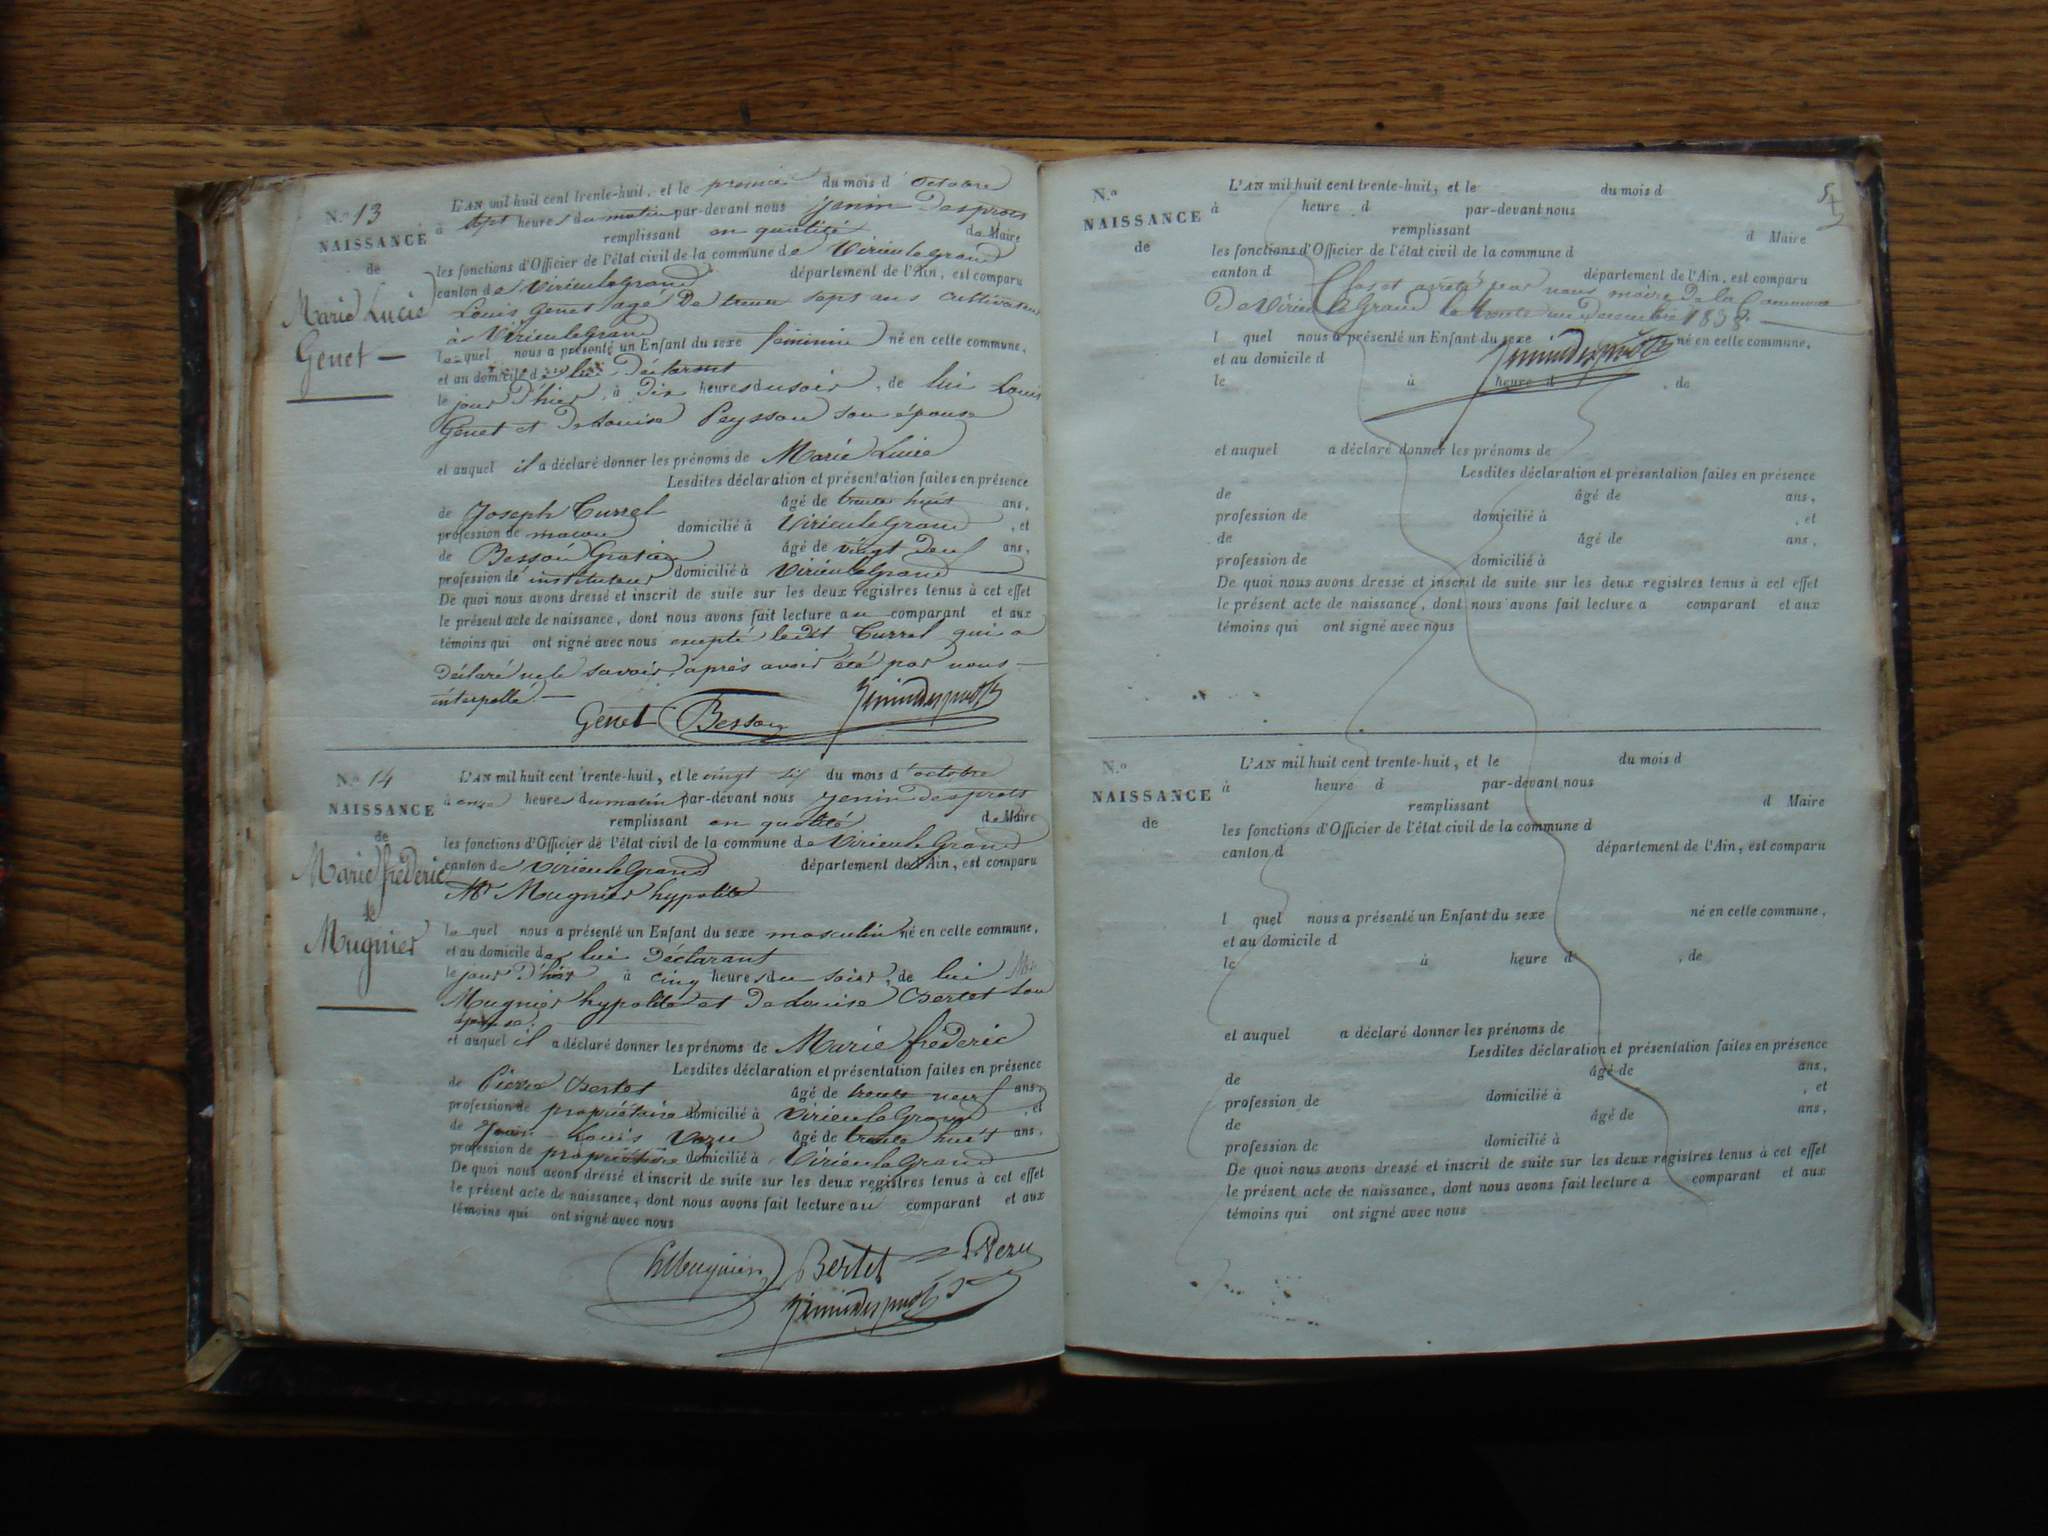 N.º 13
NAISSANCE
de
Marie Lucie
Genet —
L'AN mil huit cent trente-huit, et le premier du mois d'octobre
à sept heures du matin par-devant nous Jenin Desprots
remplissant en qualité de Maire
les fonctions d'Officier de l'état civil de la commune de Virieu le Grand
canton de Virieu le Grand département de l'Ain, est comparu
Louis Genet agé De trente sept ans cultivateur
à Virieu le Grand
le quel nous a présenté un Enfant du sexe féminin né en cette commune,
et au domicile de lui Déclarant
le jour D'hier, à Dix heures du soir, de lui Louis
Genet et De Louise Peysson son épouse
et auquel il a déclaré donner les prénoms de Marie Lucie
Lesdites déclaration et présentation faites en présence
de Joseph Currel âgé de trente huit ans,
profession de macon domicilié à Virieu le Grand, et
de Besson âgé de vingt ans,
profession de instituteur domicilié à Virieu le Grand
De quoi nous avons dressé et inscrit de suite sur les deux registres tenus à cet effet
le présent acte de naissance, dont nous avons fait lecture au comparant et aux
témoins qui ont signé avec nous excepté ledit Currel qui a
Déclaré ne le savoir après avoir été par nous —
interpellé. —
Genet Besson Jenin Desprots
N.º 14
NAISSANCE
de
Marie fréderic
Mugnier
L'AN mil huit cent trente-huit, et le vingt six du mois d'octobre
à onze heure du matin par-devant nous Jenin Desprots
remplissant en qualité de Maire
les fonctions d'Officier de l'état civil de la commune de Virieu le Grand
canton de Virieu le Grand département de l'Ain, est comparu
Mr Mugnier hypolite
le quel nous a présenté un Enfant du sexe masculin né en cette commune,
et au domicile de lui Déclarant
le jour D'hier à cinq heures du soir, de lui Mr
Mugnier hypolite et De Louise Bertet son
épouse.
et auquel il a déclaré donner les prénoms de Marie fréderic
Lesdites déclaration et présentation faites en présence
de Pierre Bertet âgé de trente neuf ans,
profession de propriétaire domicilié à Virieu le Grand, et
de Jean Louis Vezu âgé de trente huit ans,
profession de propriétaire domicilié à Virieu le Grand
De quoi nous avons dressé et inscrit de suite sur les deux registres tenus à cet effet
le présent acte de naissance, dont nous avons fait lecture au comparant et aux
témoins qui ont signé avec nous
hMugnier Bertet Vezu
Jenin Desprots
N.º
NAISSANCE
de
L'AN mil huit cent trente-huit, et le du mois d
à heure d par-devant nous
remplissant d Maire
les fonctions d'Officier de l'état civil de la commune d
canton d département de l'Ain, est comparu
Clos et arrêté par nous maire De la Commune
De Virieu le Grand le trente un Decembre 1838. —
l quel nous a présenté un Enfant du sexe né en cette commune,
et au domicile d
Jenin Desprots
le à heure d, de
et auquel a déclaré donner les prénoms de
Lesdites déclaration et présentation faites en présence
de âgé de ans,
profession de domicilié à, et
de âgé de ans,
profession de domicilié à
De quoi nous avons dressé et inscrit de suite sur les deux registres tenus à cet effet
le présent acte de naissance, dont nous avons fait lecture a comparant et aux
témoins qui ont signé avec nous
N.º
NAISSANCE
de
L'AN mil huit cent trente-huit, et le du mois d
à heure d par-devant nous
remplissant d Maire
les fonctions d'Officier de l'état civil de la commune d
canton d département de l'Ain, est comparu
l quel nous a présenté un Enfant du sexe né en cette commune,
et au domicile d
le à heure d, de
et auquel a déclaré donner les prénoms de
Lesdites déclaration et présentation faites en présence
de âgé de ans,
profession de domicilié à, et
de âgé de ans,
profession de domicilié à
De quoi nous avons dressé et inscrit de suite sur les deux registres tenus à cet effet
le présent acte de naissance, dont nous avons fait lecture a comparant et aux
témoins qui ont signé avec nous